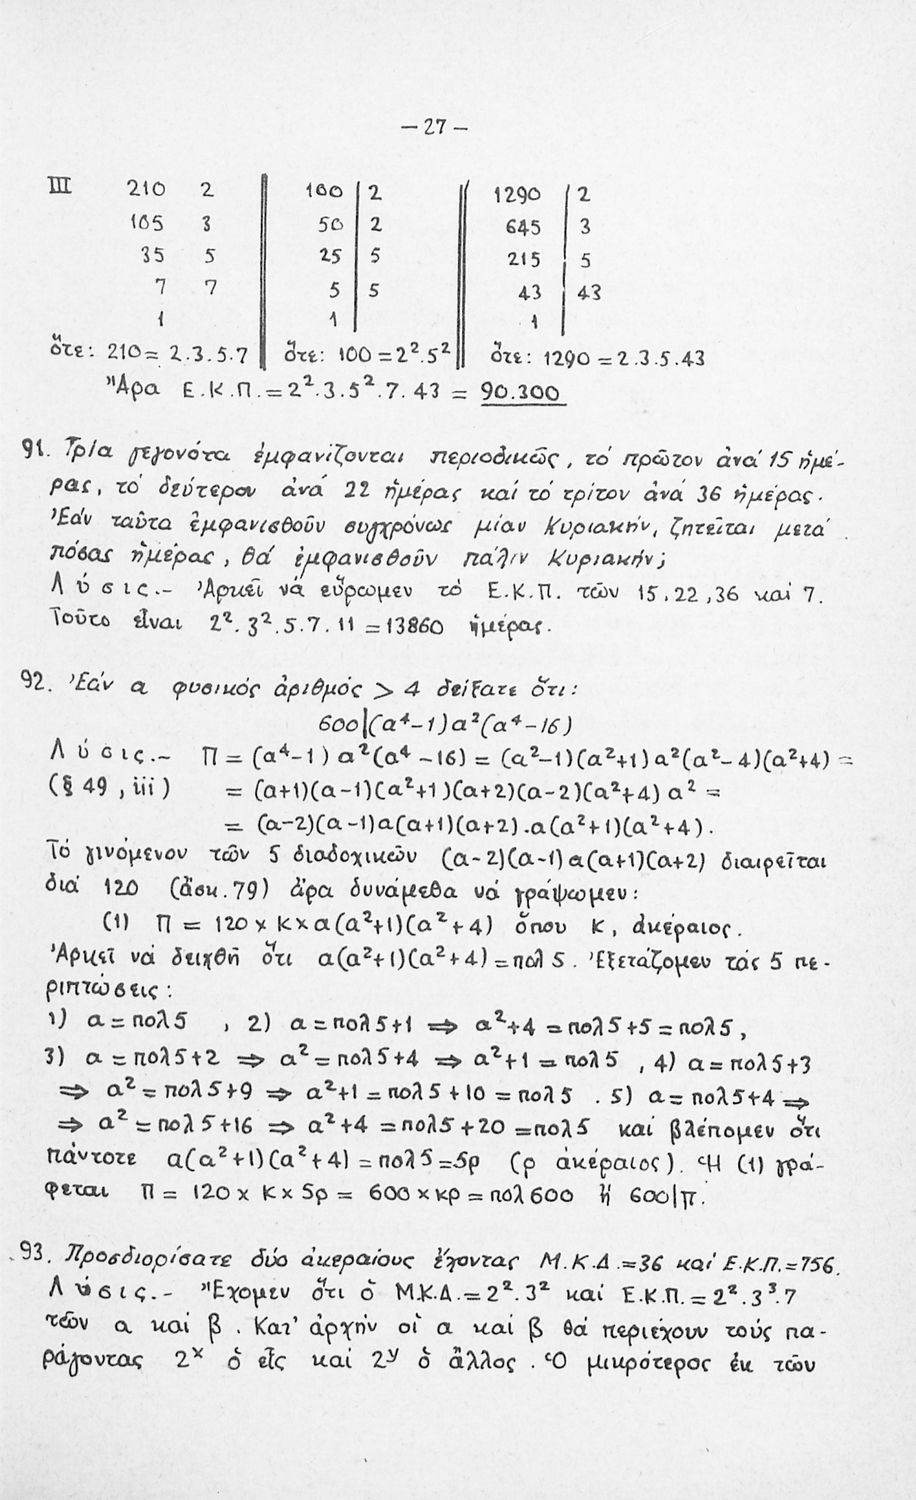 — 27 —
III 210 2 100 2 1290 2
105 3 50 2 645 3
35 5 25 5 215 5
7 7 5 5 43 43
1 1 1
ὅτε: 210 = 2.3.5.7 ὅτε: 100 = 2².5² ὅτε: 1290 = 2.3.5.43
Ἄρα Ε.Κ.Π. = 2².3.5².7.43 = 90.300
91. Τρία γεγονότα ἐμφανίζονται περιοδικῶς, τό πρῶτον ἀνά 15 ἡμέ-
ρας, τό δεύτερον ἀνά 22 ἡμέρας καί τό τρίτον ἀνά 36 ἡμέρας.
Ἐάν ταῦτα ἐμφανισθοῦν συγχρόνως μίαν Κυριακήν, ζητεῖται μετά
πόσας ἡμέρας, θά ἐμφανισθοῦν πάλιν Κυριακήν;
Λύσις.- Ἀρκεῖ νά εὕρωμεν τό Ε.Κ.Π. τῶν 15,22,36 καί 7.
Τοῦτο εἶναι 2².3².5.7.11 = 13860 ἡμέρας.
92. Ἐάν α φυσικός ἀριθμός > 4 δείξατε ὅτι:
600|(α⁴-1)α²(α⁴-16)
Λύσις.- Π = (α⁴-1)α²(α⁴-16) = (α²-1)(α²+1)α²(α²-4)(α²+4) =
(§ 49, iii) = (α+1)(α-1)(α²+1)(α+2)(α-2)(α²+4)α² =
= (α-2)(α-1)α(α+1)(α+2).α(α²+1)(α²+4).
Τό γινόμενον τῶν 5 διαδοχικῶν (α-2)(α-1)α(α+1)(α+2) διαιρεῖται
διά 120 (ἄσκ.79) ἄρα δυνάμεθα νά γράψωμεν:
(1) Π = 120 × Κ × α(α²+1)(α²+4) ὅπου Κ, ἀκέραιος.
Ἀρκεῖ νά δειχθῆ ὅτι α(α²+1)(α²+4) = πολ 5. Ἐξετάζομεν τάς 5 πε-
ριπτώσεις:
1) α = πολ5 , 2) α = πολ5+1 ⇒ α²+4 = πολ5+5 = πολ5,
3) α = πολ5+2 ⇒ α² = πολ5+4 ⇒ α²+1 = πολ5 , 4) α = πολ5+3
⇒ α² = πολ5+9 ⇒ α²+1 = πολ5+10 = πολ5 . 5) α = πολ5+4 ⇒
⇒ α² = πολ5+16 ⇒ α²+4 = πολ5+20 = πολ5 καί βλέπομεν ὅτι
πάντοτε α(α²+1)(α²+4) = πολ5 = 5ρ (ρ ἀκέραιος). Ἡ (1) γρά-
φεται Π = 120 × Κ × 5ρ = 600 × κρ = πολ600 ἤ 600|π.
93. Προσδιορίσατε δύο ἀκεραίους ἔχοντας Μ.Κ.Δ. = 36 καί Ε.Κ.Π. = 756.
Λύσις.- Ἔχομεν ὅτι ὁ Μ.Κ.Δ. = 2².3² καί Ε.Κ.Π. = 2².3³.7
τῶν α καί β. Κατ' ἀρχήν οἱ α καί β θά περιέχουν τούς πα-
ράγοντας 2ˣ ὁ εἷς καί 2ʸ ὁ ἄλλος. Ὁ μικρότερος ἐκ τῶν